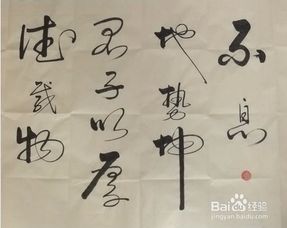 不息
地势坤
君子以厚
德载物
Baidu经验
jingyan.baidu.com